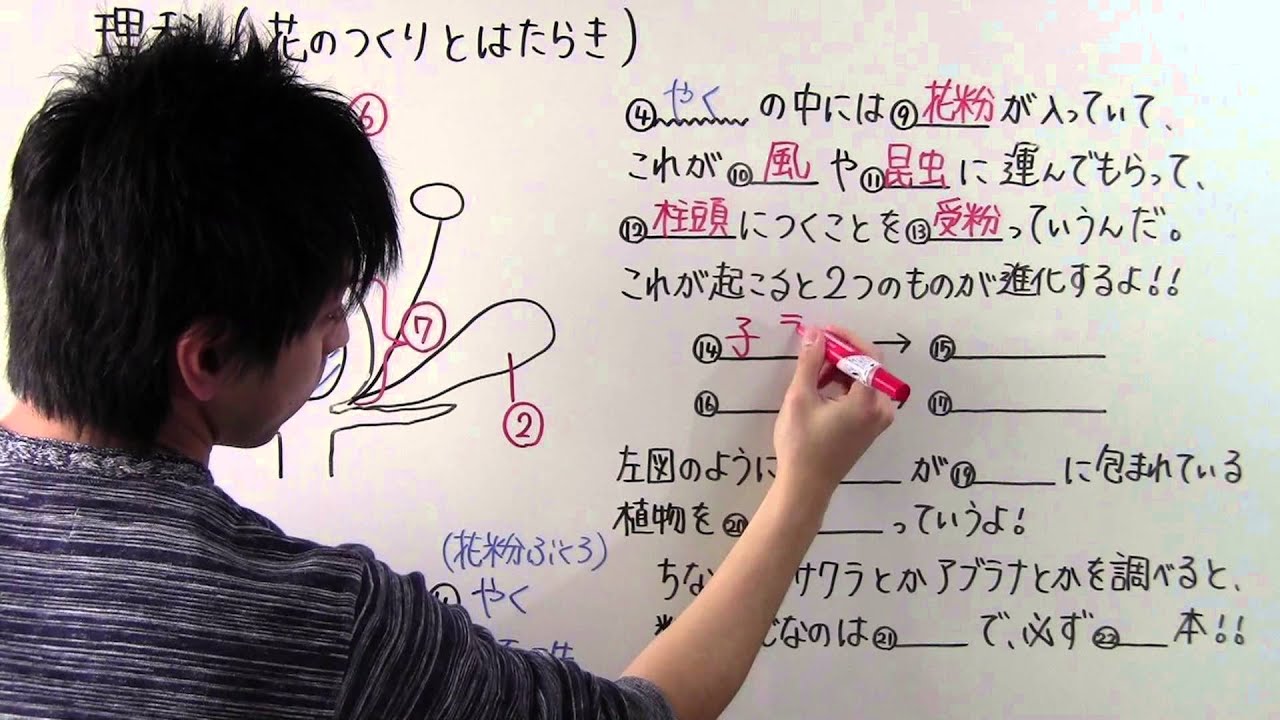 理科(花のつくりとはたらき)
⑥
⑦
②
(花粉ぶくろ)
やく
④やくの中には⑨花粉が入っていて、
これが⑩風や⑪昆虫に運んでもらって、
⑫柱頭につくことを⑬受粉っていうんだ。
これが起こると2つのものが進化するよ!!
⑭子 → ⑮
⑯ ⑰
左図のように が⑲ に包まれている
植物を⑳ っていうよ!
ちな サクラとかアブラナとかを調べると、
なのは㉑ で、必ず㉒ 本!!